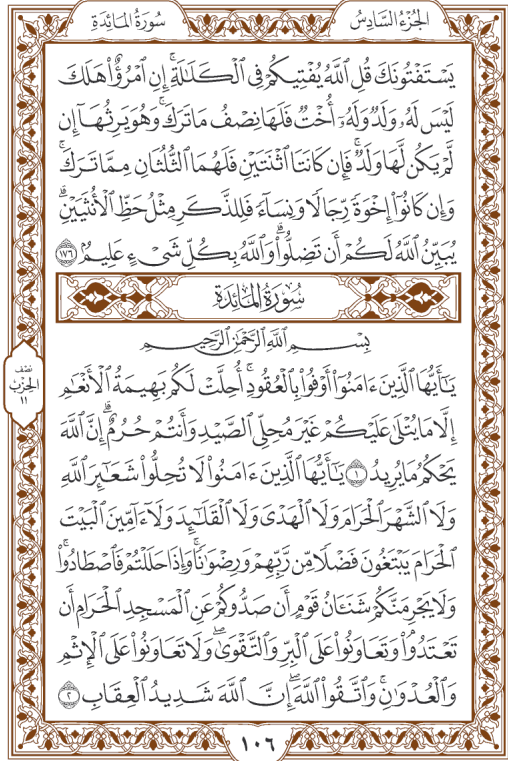 الجُزْءُ السَّادِسُ
سُورَةُ المَائِدَةِ
يَسۡتَفۡتُونَكَ قُلِ ٱللَّهُ يُفۡتِيكُمۡ فِي ٱلۡكَلَٰلَةِۚ إِنِ ٱمۡرُؤٌاْ هَلَكَ
لَيۡسَ لَهُۥ وَلَدٞ وَلَهُۥٓ أُخۡتٞ فَلَهَا نِصۡفُ مَا تَرَكَۚ وَهُوَ يَرِثُهَآ إِن
لَّمۡ يَكُن لَّهَا وَلَدٞۚ فَإِن كَانَتَا ٱثۡنَتَيۡنِ فَلَهُمَا ٱلثُّلُثَانِ مِمَّا تَرَكَۚ
وَإِن كَانُوٓاْ إِخۡوَةٗ رِّجَالٗا وَنِسَآءٗ فَلِلذَّكَرِ مِثۡلُ حَظِّ ٱلۡأُنثَيَيۡنِۗ
يُبَيِّنُ ٱللَّهُ لَكُمۡ أَن تَضِلُّواْۗ وَٱللَّهُ بِكُلِّ شَيۡءٍ عَلِيمُۢ ١٧٦
سُورَةُ المَائِدَةِ
بِسۡمِ ٱللَّهِ ٱلرَّحۡمَٰنِ ٱلرَّحِيمِ
يَٰٓأَيُّهَا ٱلَّذِينَ ءَامَنُوٓاْ أَوۡفُواْ بِٱلۡعُقُودِۚ أُحِلَّتۡ لَكُم بَهِيمَةُ ٱلۡأَنۡعَٰمِ
إِلَّا مَا يُتۡلَىٰ عَلَيۡكُمۡ غَيۡرَ مُحِلِّي ٱلصَّيۡدِ وَأَنتُمۡ حُرُمٌۗ إِنَّ ٱللَّهَ
يَحۡكُمُ مَا يُرِيدُ ١ يَٰٓأَيُّهَا ٱلَّذِينَ ءَامَنُواْ لَا تُحِلُّواْ شَعَٰٓئِرَ ٱللَّهِ
وَلَا ٱلشَّهۡرَ ٱلۡحَرَامَ وَلَا ٱلۡهَدۡيَ وَلَا ٱلۡقَلَٰٓئِدَ وَلَآ ءَآمِّينَ ٱلۡبَيۡتَ
ٱلۡحَرَامَ يَبۡتَغُونَ فَضۡلٗا مِّن رَّبِّهِمۡ وَرِضۡوَٰنٗاۚ وَإِذَا حَلَلۡتُمۡ فَٱصۡطَادُواْۚ
وَلَا يَجۡرِمَنَّكُمۡ شَنَـَٔانُ قَوۡمٍ أَن صَدُّوكُمۡ عَنِ ٱلۡمَسۡجِدِ ٱلۡحَرَامِ أَن
تَعۡتَدُواْۘ وَتَعَاوَنُواْ عَلَى ٱلۡبِرِّ وَٱلتَّقۡوَىٰۖ وَلَا تَعَاوَنُواْ عَلَى ٱلۡإِثۡمِ
وَٱلۡعُدۡوَٰنِۚ وَٱتَّقُواْ ٱللَّهَۖ إِنَّ ٱللَّهَ شَدِيدُ ٱلۡعِقَابِ ٢
نصف
الحزب
١١
١٠٦